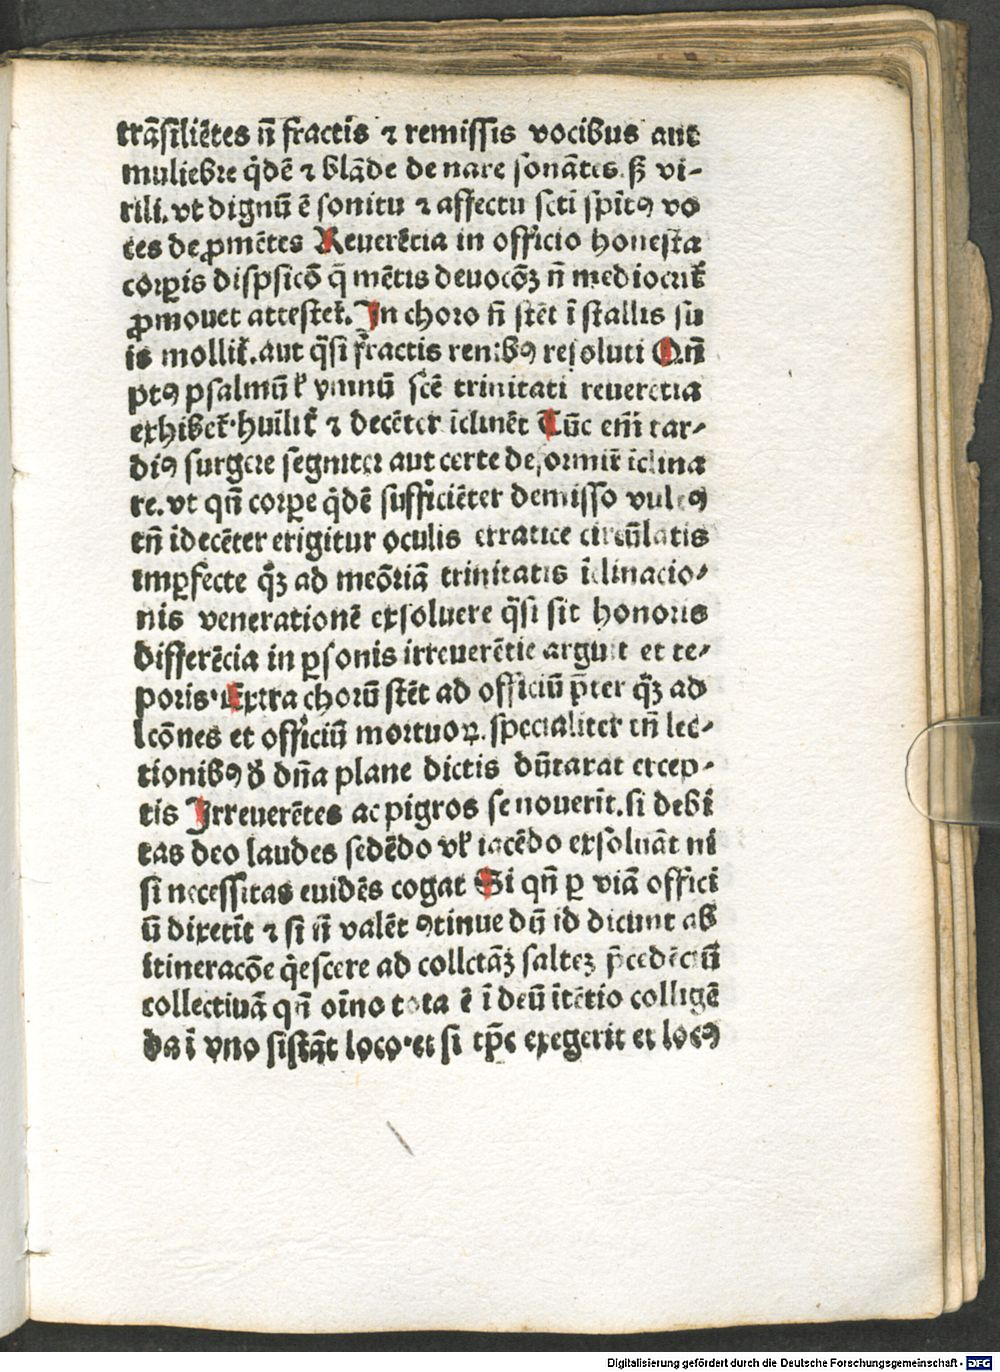 trāsiliētes n̄ fractis ⁊ remissis vocibus aut
muliebre q̇dē ⁊ blāde de nare sonātes. sꝫ vi-
rili. vt dignū ē sonitu ⁊ affectu scti spūsꝰ vo
ces deꝓmētes Reuerētia in officio honesta
corꝑis disp̄sicō q̄ mētis deuocōꝫ n̄ mediocrit̄
ꝓmouet attestet᷑. In choro n̄ stēt ī stallis su
is mollit̄. aut q̄si fractis renibꝰ resoluti Qn̄
ptꝰ psalmū l̓ ymnū scē trinitati reuerētia
exhibet᷑. huīlit̄ ⁊ decēter īclinēt Cūc em̄ tar-
diꝰ surgere segniter aut certe deformit̄ īclina
re. vt qn̄ corꝑe q̇dē sufficiēter demisso vultꝰ
tn̄ īdecēter erigitur oculis erratice circūlatis
imꝑfecte q̄ꝫ ad meōriā trinitatis īclinacio-
nis venerationē exsoluere q̄si sit honoris
differēcia in ꝑsonis irreuerētie arguit et te-
poris. Extra chorū stēt ad officiū p̄ter q̄ꝫ ad
lcōnes et officiū mortuoꝝ. specialiter tn̄ lec-
tionibꝰ d̓ dn̄a plane dictis dūtaxat excep-
tis Irreuerētes ac pigros se nouerīt. si debi
tas deo laudes sedēdo vl̓ iacēdo exsoluāt ni
si necessitas euidēs cogat Si qn̄ ꝑ viā offici
ū dixerīt ⁊ si n̄ valēt ꝯtinue dū id dicunt ab
itineracōe q̇escere ad collctāꝫ salteꝫ p̄cedētiū
collectiuā qn̄ oīno tota ē ī deū ītētio colligē
da ī vno sistāt loco. et si tp̄s exegerit et locꝰ
Digitalisierung gefördert durch die Deutsche Forschungsgemeinschaft - DFG